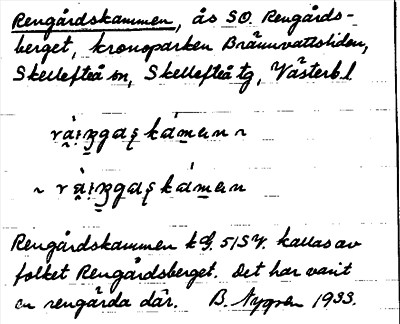 Rengårdskammen, ås SO. Rengårds-
berget, kronoparken Brännvattsliden,
Skellefteå sn, Skellefteå tg, Västerb.l
Rengårdskammen kG. 51SV. kallas av
folket Rengårdsberget. Det har varit
en rengärda där. B. Nygren 1933.